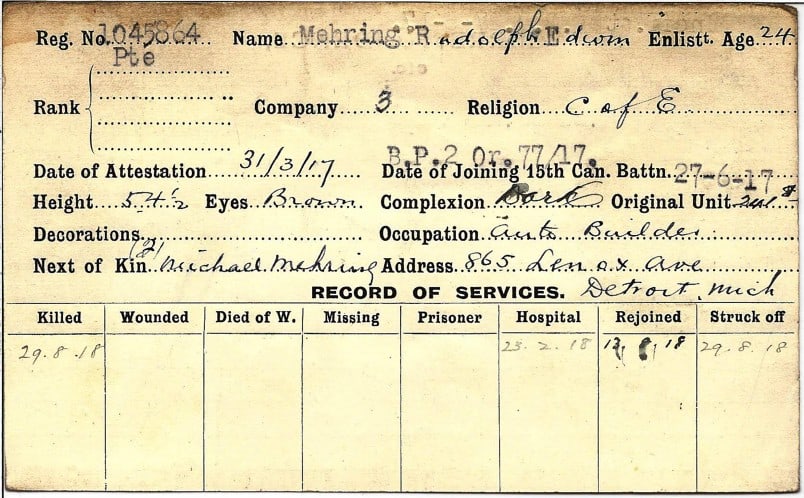 Reg. No. 1045864 Name Mehring Rudolph Edwin Enlistt. Age 24
Pte
Rank Company 3 Religion C of E
B.P.2 Or.77/17.
Date of Attestation 31/3/17 Date of Joining 15th Can. Battn. 27-6-17
Height 5 4½ Eyes Brown Complexion Dark Original Unit
Decorations Occupation Auto Builder
Next of Kin (2) Michael Mehring Address 865 Lenox Ave
RECORD OF SERVICES. Detroit, Mich
Killed Wounded Died of W. Missing Prisoner Hospital Rejoined Struck off
29.8.18 23.2.18 13 8 18 29.8.18